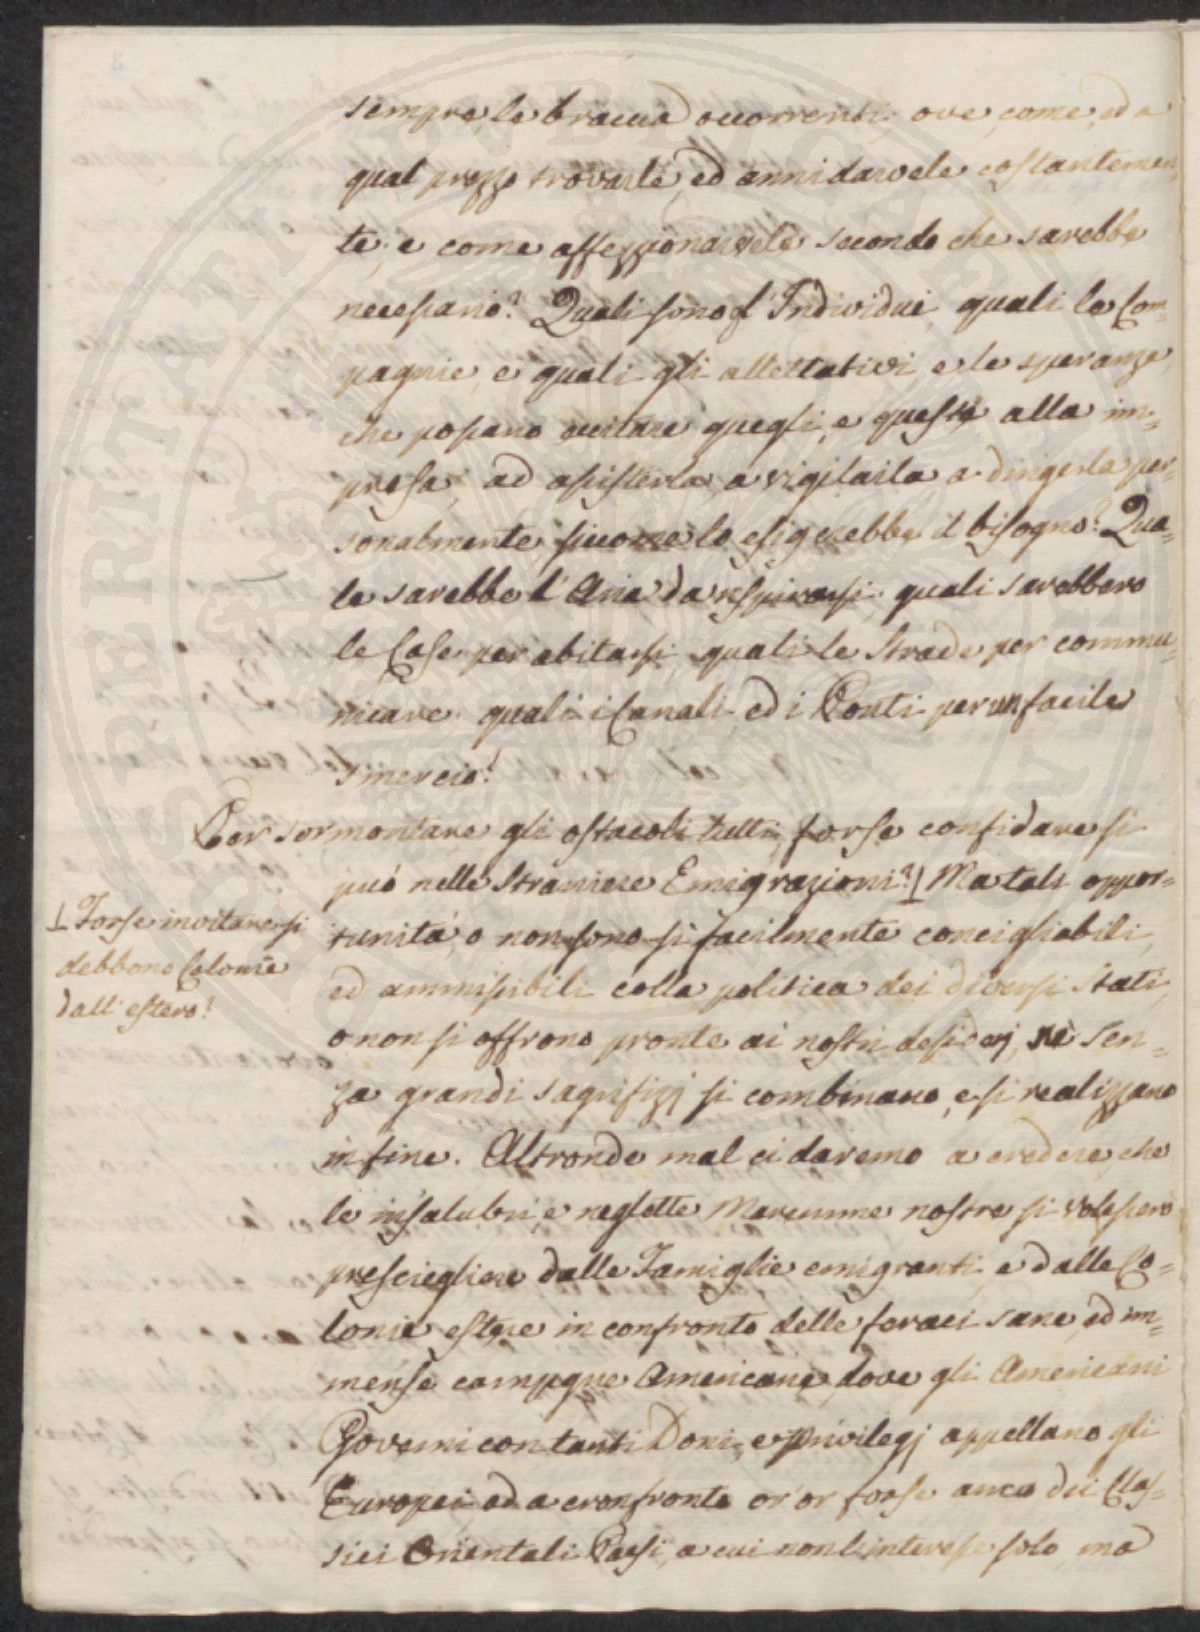 sempre le braccia occorrenti, ove, come, ed a
qual prezzo trovarle, ed annidarvele costantemen,
te; e come affezzionarvele secondo che sarebbe
necessario? Quali sono gl'Individui, quali le Com=
pagnie, e quali gli allettativi, e le speranze,
che possano eccitare quegli, e queste alla im=
presa, ad assisterla, a vigilarla a dirigerla per=
sonalmente siccome lo esigerebbe il bisogno? Qua=
le sarebbe l'Aria da respirarsi, quali sarebbero
le Case per abitarsi, quali le Strade per commu=
nicare, quali i Canali, ed i Ponti per un facile
smercio?
Per sormontare gli ostacoli tutti, forse confidare si
può nelle Straniere Emigrazioni?⊥ Ma tali oppor=
⊥ Forse invitare si
debbono Colonie
dall'estero?
tunità, o non sono sì facilmente concigliabili,
ed ammissibili colla politica dei diversi Stati,
o non si offrono pronte ai nostri desiderj, nè sen=
za grandi sagrifizj si combinano, e si realizzano
in fine. Altronde mal ci daremo a credere, che
le insalubri, e neglette Maremme nostre si volessero
prescieglere dalle Famiglie emigranti, e dalle Co=
lonie estere in confronto delle feraci sane, ed im=
mense campagne Americane, dove gli Americani
Governi con tanti Doni, e Privilegj appellano gli
Europei, ed a confronto or'or forse anco dei Clas=
sici Orientali Paesi, a cui non l'interesse solo, ma